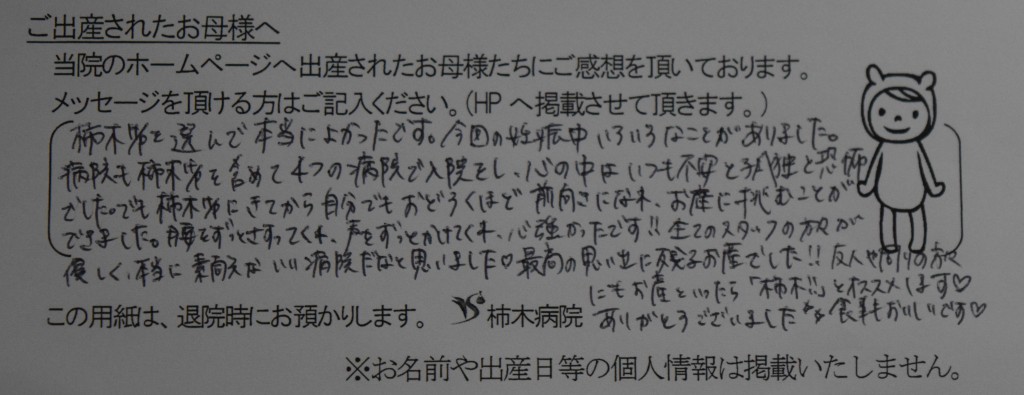 ご出産されたお母様へ
当院のホームページへ出産されたお母様たちにご感想を頂いております。
メッセージを頂ける方はご記入ください。(HPへ掲載させて頂きます。)
柿木さんを選んで本当によかったです。今回の妊娠中いろいろなことがありました。
病院も柿木さんを含めて4つの病院で入院をし、心の中はいつも不安と孤独と恐怖
でした。でも柿木さんにきてから自分でもおどろくほど前向きになれ、お産に挑むことが
できました。腰をずっとさすってくれ、声をずっとかけてくれ、心強かったです!!全てのスタッフの方々が
優しく、本当に素敵ないい病院だなと思いました♡最高の思い出に残るお産でした!!友人や周りの方々
にもお産といったら「柿木!!」とオススメします♡
ありがとうございました 食事もおいしいです♡
この用紙は、退院時にお預かりします。 柿木病院
※お名前や出産日等の個人情報は掲載いたしません。